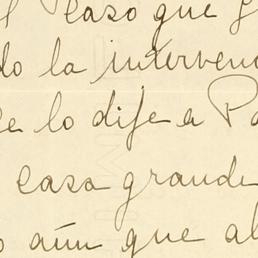 caso que
do la interven
e lo dije a Pa
casa grande
aún que al